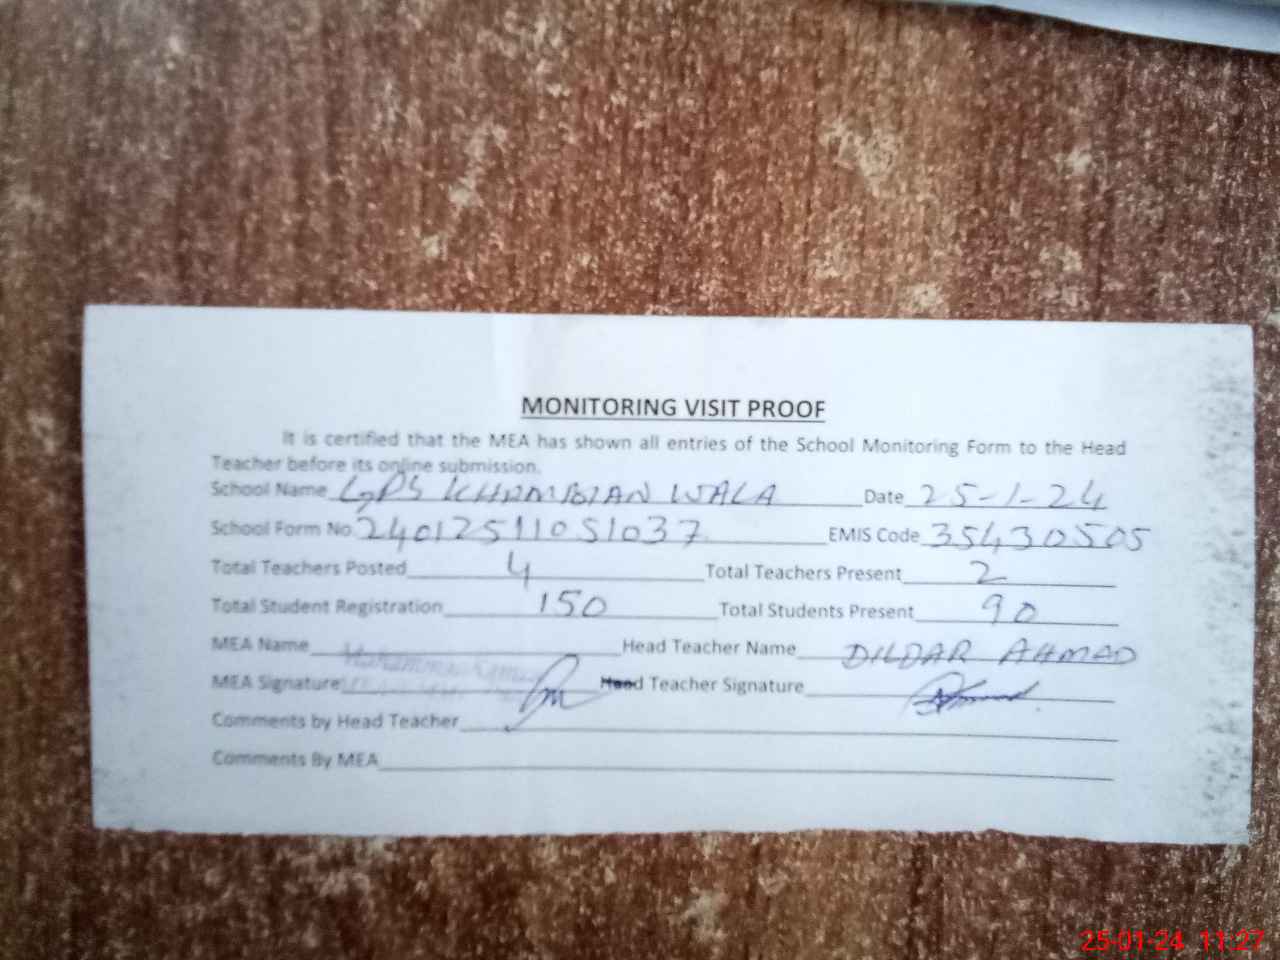 MONITORING VISIT PROOF
It is certified that the MEA has shown all entries of the School Monitoring Form to the Head
Teacher before its online submission.
School Name GPS KHAMBIAN WALA Date 25-1-24
School Form No. 24012511051037 EMIS Code 35430505
Total Teachers Posted 4 Total Teachers Present 2
Total Student Registration 150 Total Students Present 90
MEA Name Head Teacher Name DILDAR AHMAD
MEA Signature Head Teacher Signature
Comments by Head Teacher
Comments By MEA
25-01-24 11:27